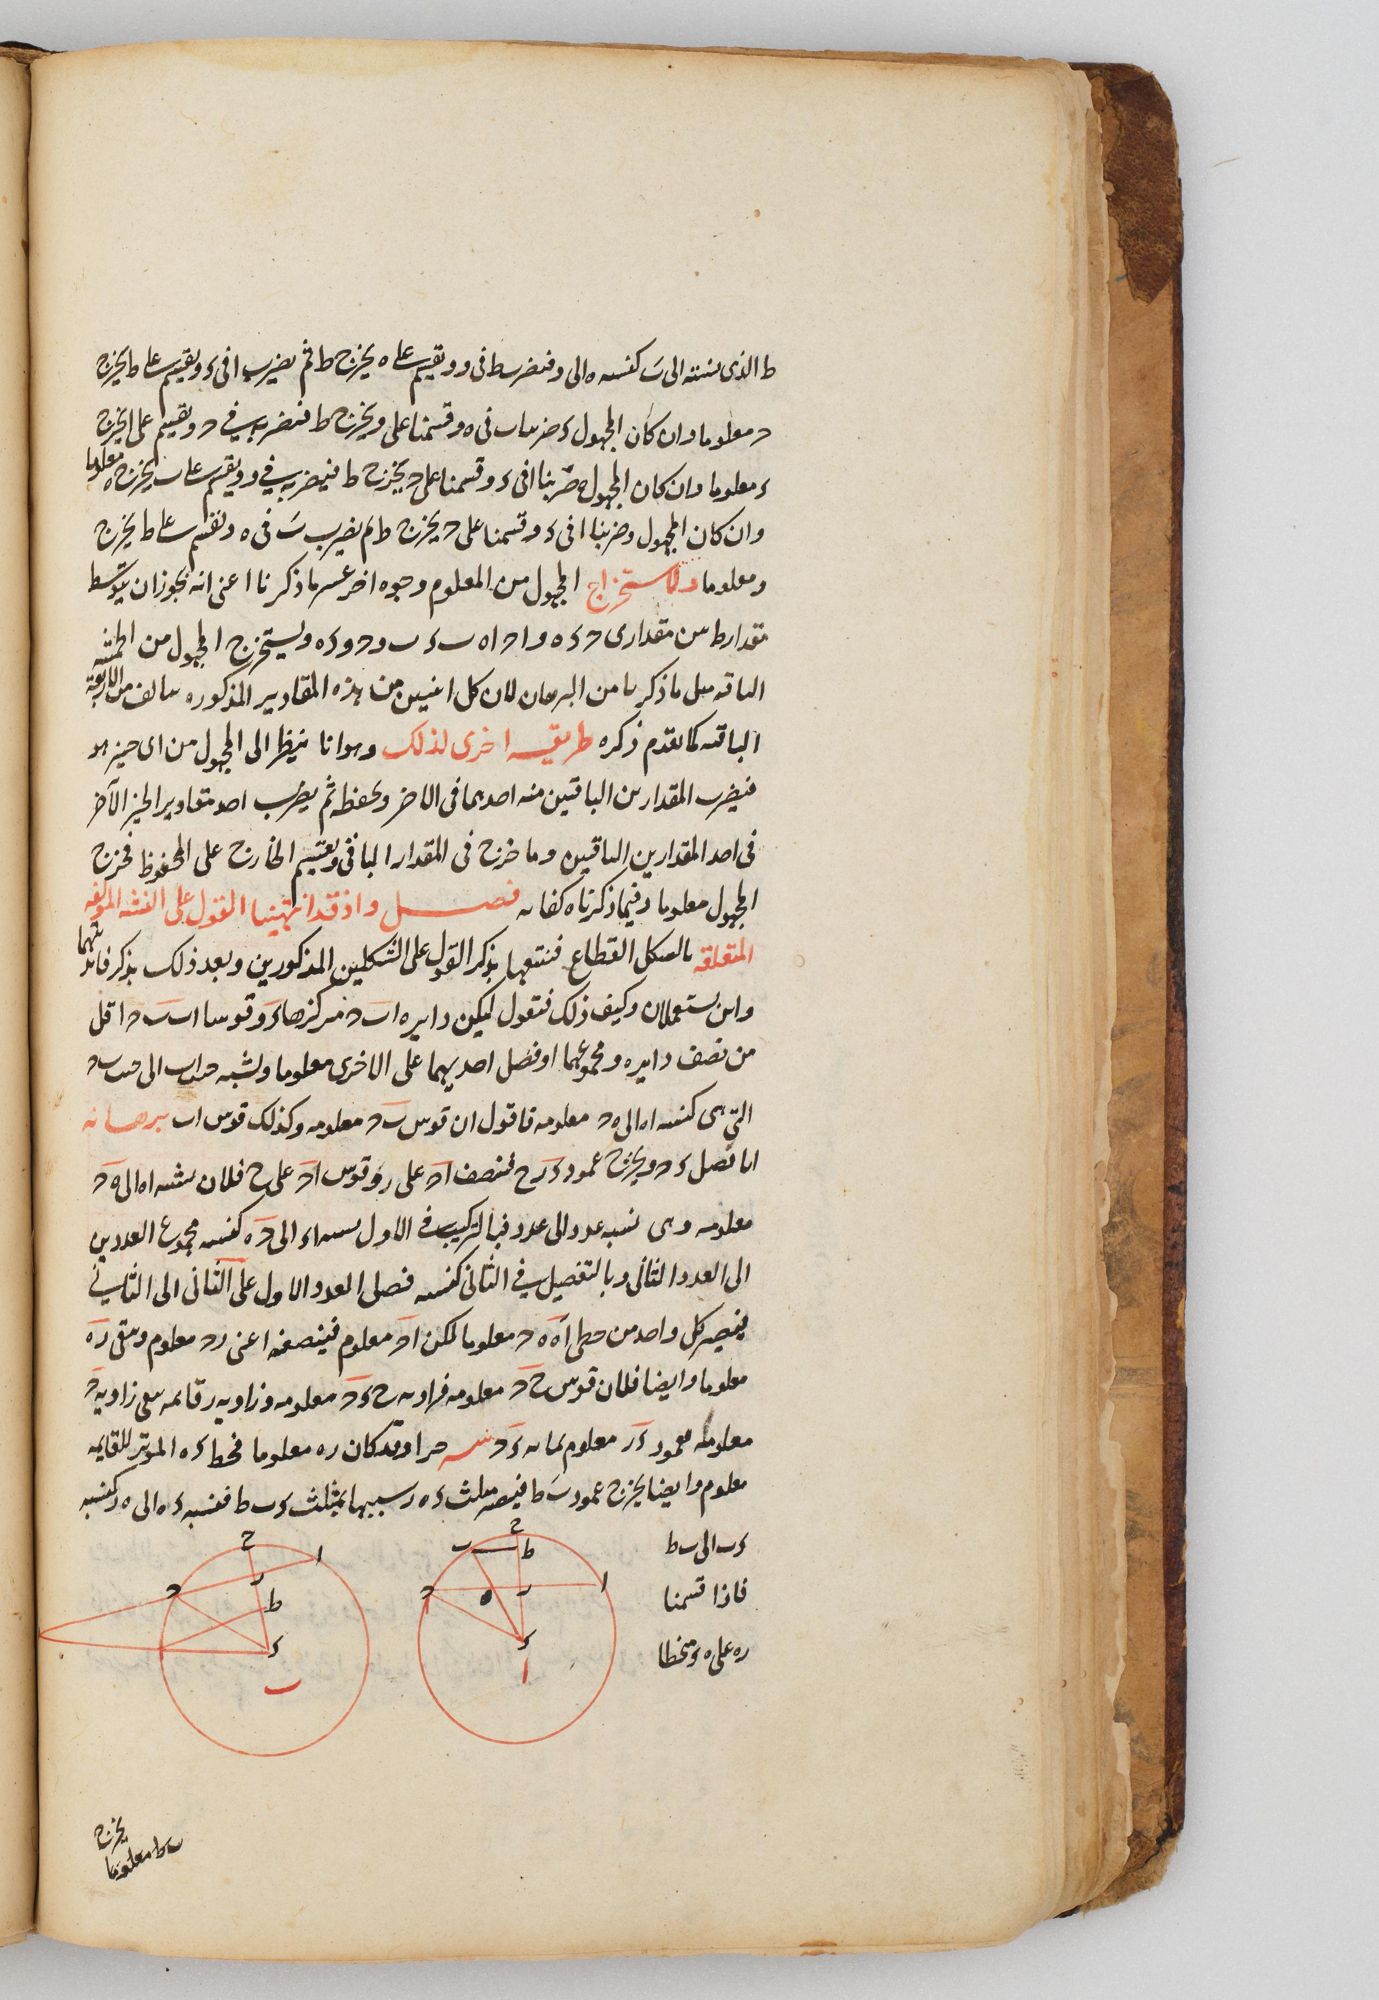 ط الذى نسبته الى ب كنسبه ه الى و فنضرب ط فى و ونقسم على ه يخرج ط ثم نضرب ا فى د ونقسم على ط يخرج
ح معلوما وان كان المجهول د ضربنا ب فى ه وقسمنا على و يخرج ط فنضربه فى ح ونقسم على ا يخرج
د معلوما وان كان المجهول ه ضربنا ا فى د وقسمنا على ح يخرج ط فنضربه فى و ونقسم على ب يخرج ه معلوما
وان كان المجهول و ضربنا ا فى د وقسمنا على ح يخرج ط ثم نضرب ب فى ه ونقسم على ط يخرج
و معلوما ولاستخراج المجهول من المعلوم وجوه اخر غير ما ذكرنا اعنى انه يجوز ان يتوسط
مقدار ط بين مقدارى ح د ه و ا ح ا ه ب د ب و ح و د ه ويستخرج المجهول من الخمسة
الباقيه مثل ما ذكرنا من البرهان لان كل اثنين من هذه المقادير المذكوره من الاربعة
الباقيه كما تقدم ذكره طريقه اخرى لذلك وهو انا ننظر الى المجهول من اى حيز هو
فنضرب المقدارين الباقيين منه احدهما فى الاخر ونحفظه ثم نضرب احد مقادير الحيز الآخر
فى احد المقدارين الباقيين وما خرج فى المقدار الباقى ونقسم الخارج على المحفوظ فيخرج
المجهول معلوما وفيما ذكرناه كفايه فصل واذ قد انتهينا القول على النسبه المولفه
المتعلقه بالشكل القطاع فنتبعها بذكر القول على الشكلين المذكورين وبعد ذلك نذكر فائدتهما
واين يستعملان وكيف ذلك فنقول ليكن دايره اب ح مركزها د وقوسا اب ب ح اقل
من نصف دايره ومجموعهما او فضل احديهما على الاخرى معلوما ونسبه جيب اب الى جيب ب ح
التى هى كنسبه اه الى ه ح معلومه فاقول ان قوس ب ح معلومه وكذلك قوس اب برهانه
انا نصل د ح ويخرج عمود د ر ح فينصف اح على ر وقوس اح على ح فلان نسبه اه الى ه ح
معلومه وهى نسبه عدد الى عدد فبالتركيب فى الاول نسبه اح الى ح ه كنسبه مجموع العددين
الى العدد الثانى وبالتفصيل فى الثانى كنسبه فضل العدد الاول على الثانى الى الثانى
فيصير كل واحد من خطى اه ه ح معلوما لكن اح معلوم فينصفه اعنى ر ح معلوم وبقى ر ه
معلوما وايضا فلان قوس ح ح معلومه فزاويه ح د ح معلومه وزاويه ر قايمه بقى زاويه ح
معلومه فعمود د ر معلوم بما به د ح وقد كان ر ه معلوما فخط د ه الموتر للقايمه
معلوم وايضا يخرج عمود ب ط فيصير مثلث د ه ر شبيها بمثلث د ب ط فنسبه د ه الى ه ر كنسبه
د ب الى ب ط
فاذا قسمنا
ره على ه د منحطا
ح
ب
ط
ح
ر
ا
ه
د
ا
ح
ا
ر
ح
ط
د
ب
يخرج
ب ط معلوما